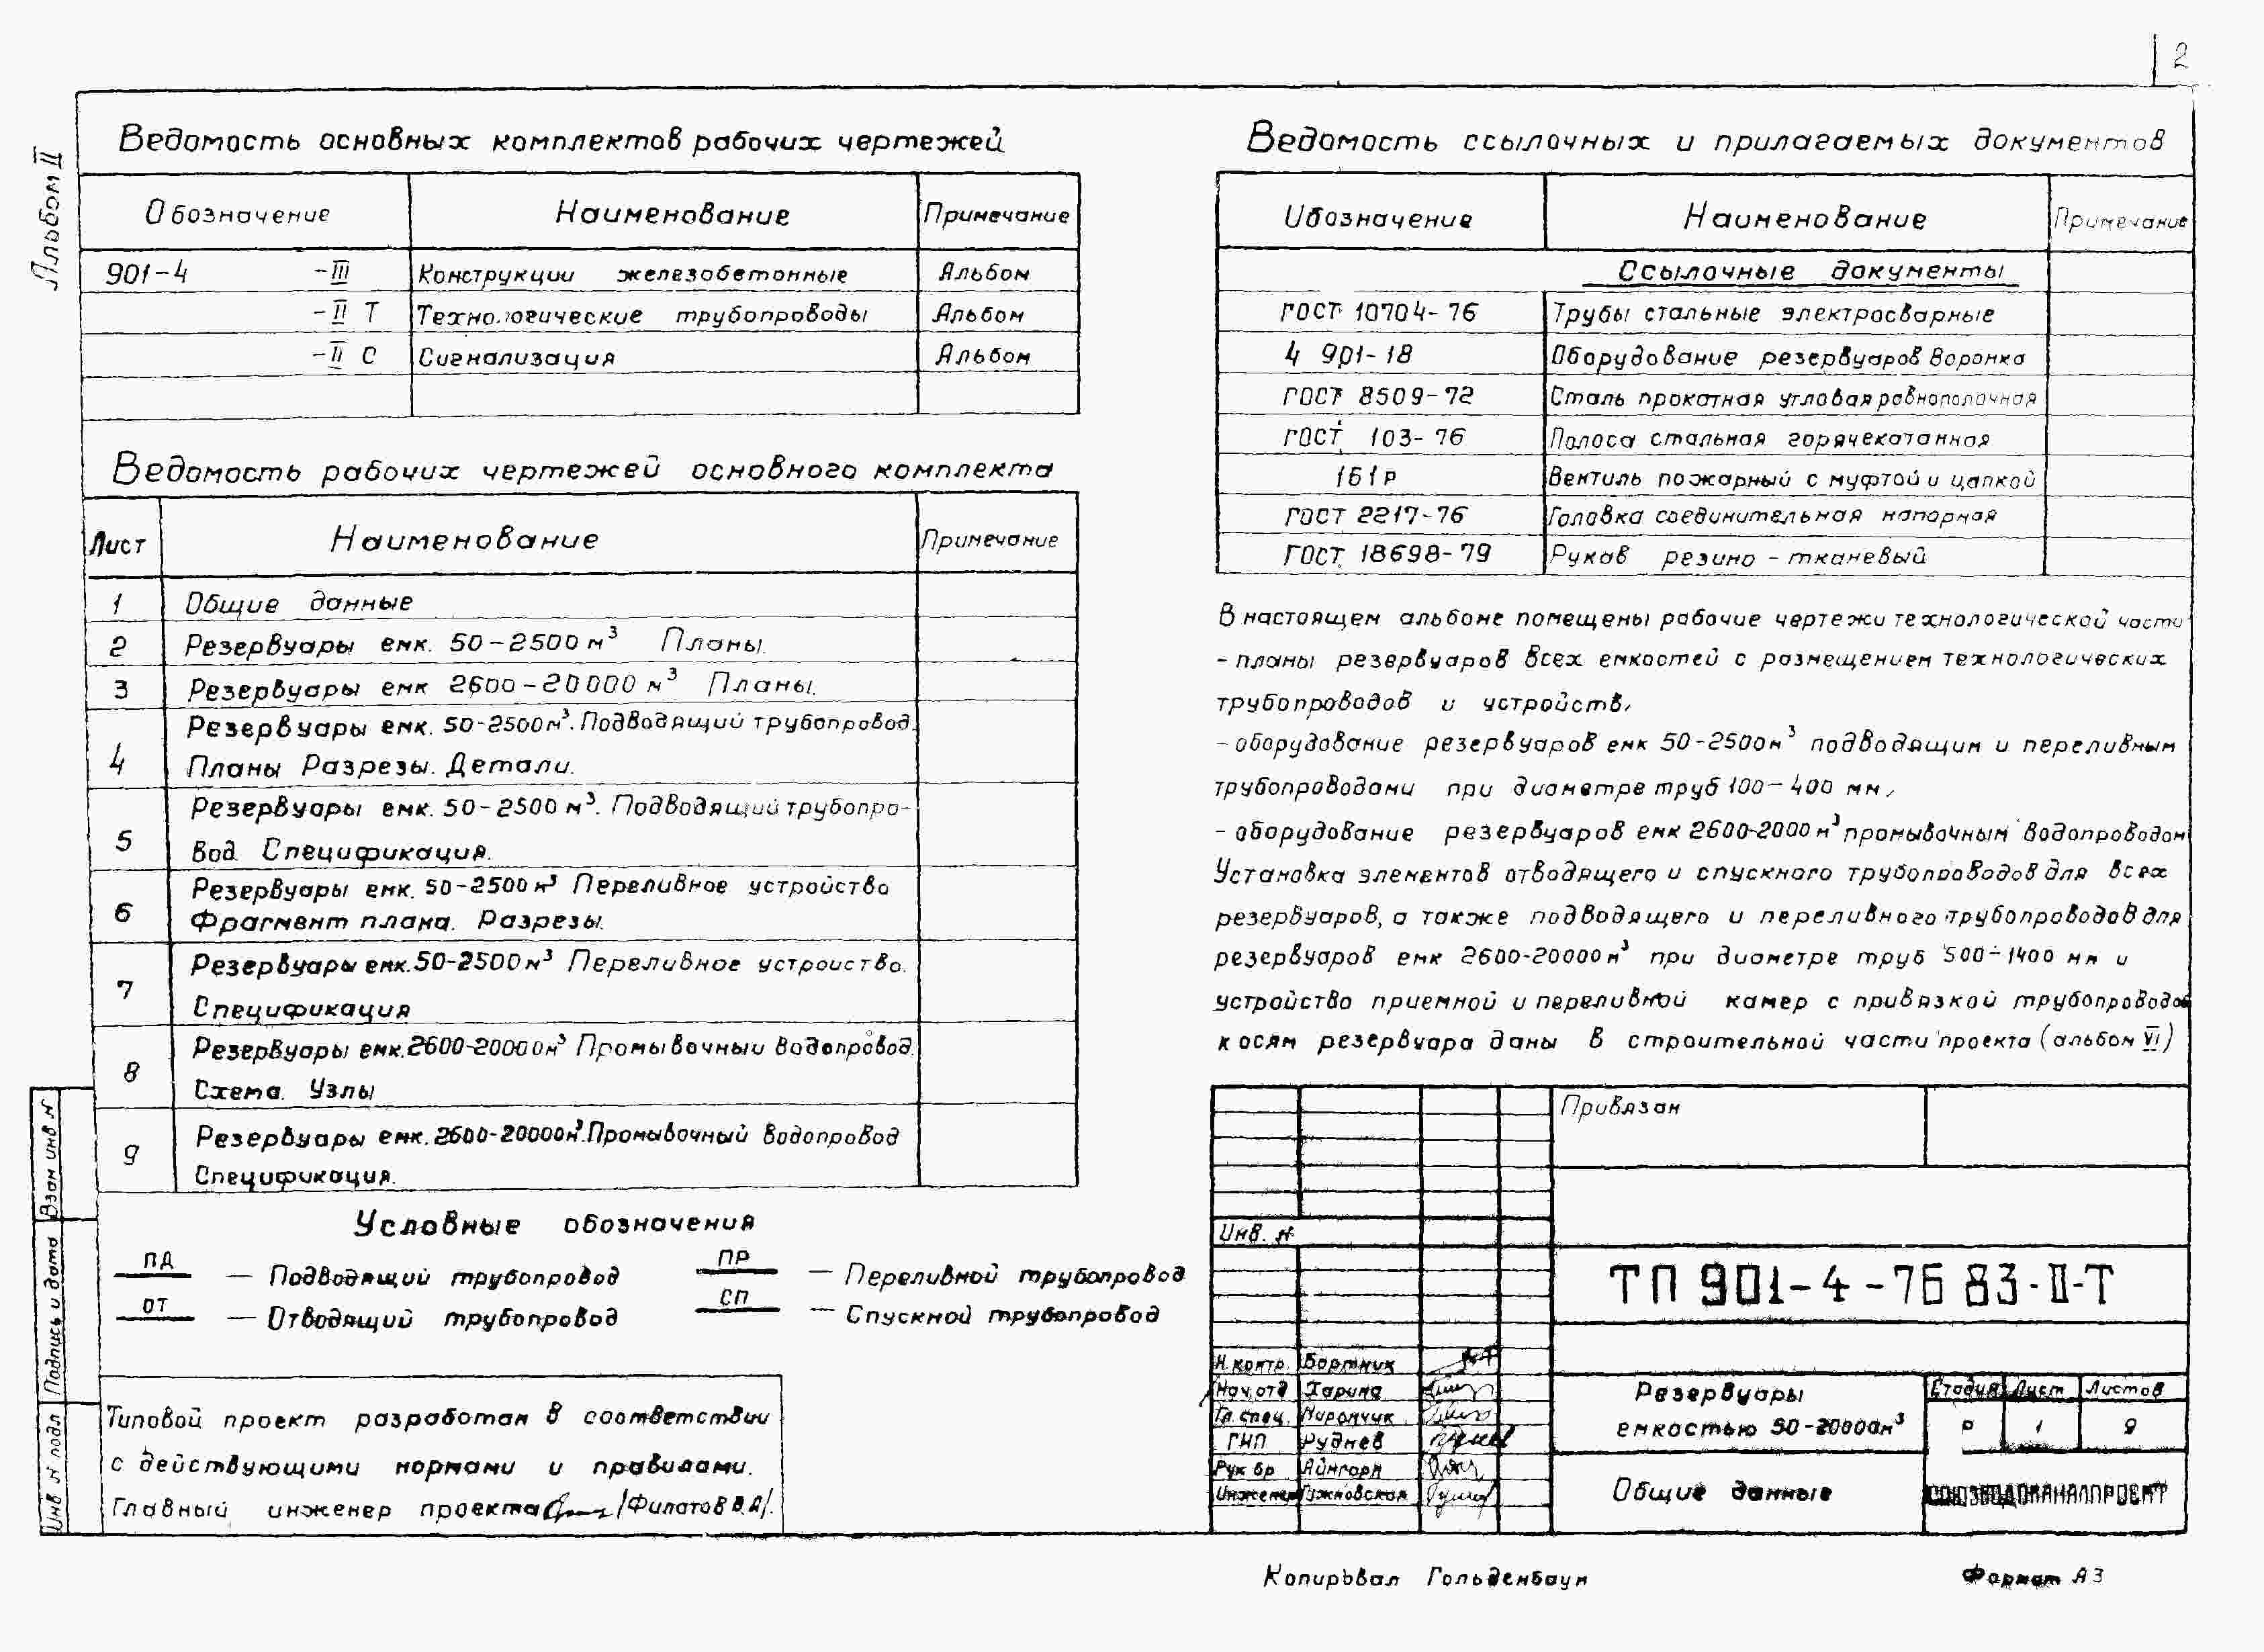 2
Альбом II
Ведомость основных комплектов рабочих чертежей
Обозначение Наименование Примечание
901-4 -III Конструкции железобетонные Альбом
-II Т Технологические трубопроводы Альбом
-II С Сигнализация Альбом
Ведомость рабочих чертежей основного комплекта
Лист Наименование Примечание
1 Общие данные
2 Резервуары емк. 50-2500 м³ Планы.
3 Резервуары емк 2600-20000 м³ Планы.
4 Резервуары емк. 50-2500 м³. Подводящий трубопровод.
Планы Разрезы. Детали.
5 Резервуары емк. 50-2500 м³. Подводящий трубопро-
вод. Спецификация.
6 Резервуары емк. 50-2500 м³ Переливное устройство
Фрагмент плана. Разрезы.
7 Резервуары емк. 50-2500 м³ Переливное устройство.
Спецификация
8 Резервуары емк. 2600-20000 м³ Промывочный водопровод.
Схема. Узлы
9 Резервуары емк. 2600-20000 м³. Промывочный водопровод
Спецификация.
Условные обозначения
ПД — Подводящий трубопровод ПР — Переливной трубопровод
ОТ — Отводящий трубопровод СП — Спускной трубопровод
Типовой проект разработан в соответствии
с действующими нормами и правилами.
Главный инженер проекта /Филатов В.А/.
Взам инв N
Подпись и дата
Инв N подл
Ведомость ссылочных и прилагаемых документов
Обозначение Наименование Примечание
Ссылочные документы
ГОСТ 10704-76 Трубы стальные электросварные
4 901-18 Оборудование резервуаров Воронка
ГОСТ 8509-72 Сталь прокатная угловая равнополочная
ГОСТ 103-76 Полоса стальная горячекатанная
1б1р Вентиль пожарный с муфтой и цапкой
ГОСТ 2217-76 Головка соединительная напорная
ГОСТ 18698-79 Рукав резино-тканевый
В настоящем альбоме помещены рабочие чертежи технологической части
- планы резервуаров всех емкостей с размещением технологических
трубопроводов и устройств,
- оборудование резервуаров емк 50-2500м³ подводящим и переливным
трубопроводами при диаметре труб 100-400 мм,
- оборудование резервуаров емк 2600-2000 м³ промывочным водопроводом
Установка элементов отводящего и спускного трубопроводов для всех
резервуаров, а также подводящего и переливного трубопроводов для
резервуаров емк 2600-20000 м³ при диаметре труб 500÷1400 мм и
устройство приемной и переливной камер с привязкой трубопроводов
к осям резервуара даны в строительной части проекта (альбом VI)
Привязан
Инв. N
ТП 901-4-76 83-II-Т
Н. контр. Бортник
Нач. отд Ларина
Гл. спец. Мирончук
ГИП Руднев
Рук бр Айнгорн
Инженер Гужновская
Резервуары
емкостью 50-20000м³
Стадия Лист Листов
Р 1 9
Общие данные
СОЮЗВОДОКАНАЛПРОЕКТ
Копировал Гольденбаум
Формат А3